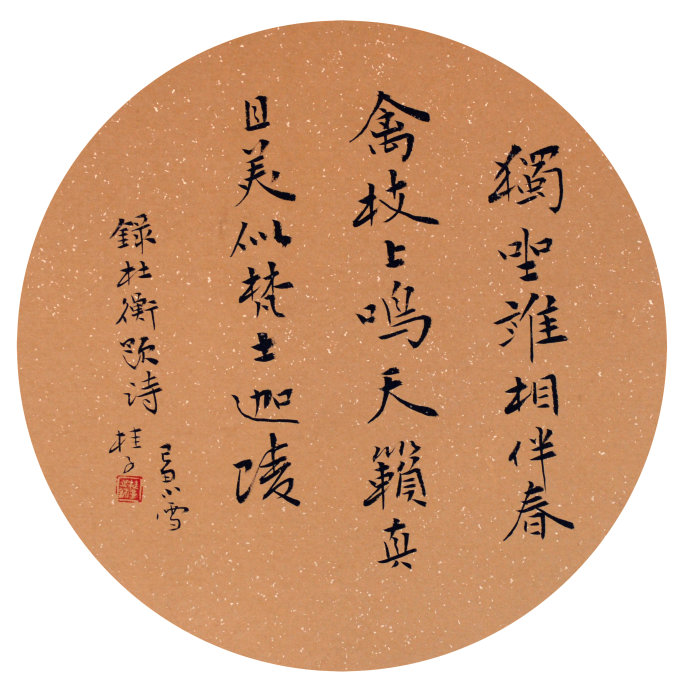 獨坐誰相伴春
禽枝上鳴天籟真
且美似梵士迦陵
録杜衡题詩
桂子
小雪